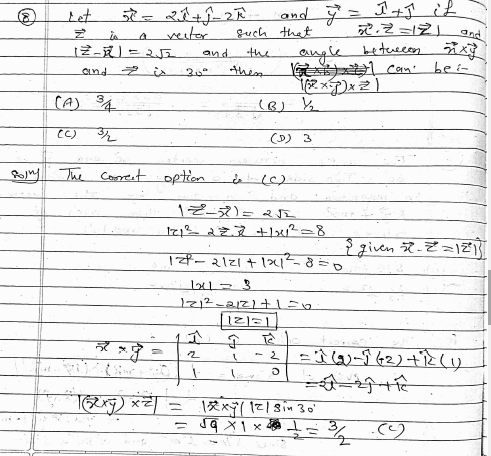 ⑧ Let x⃗ = 2î+ĵ-2k̂ and y⃗ = î+ĵ if
z⃗ is a vector such that x⃗.z⃗ = |z⃗| and
|z⃗-x⃗| = 2√2 and the angle between x⃗×y⃗
and z⃗ is 30° then |(x⃗×y⃗)×z⃗| can be :-
(A) 3/4 (B) 1/2
(C) 3/2 (D) 3
Solⁿ) The correct option is (C)
|z⃗-x⃗| = 2√2
|z|² - 2z⃗.x⃗ + |x|² = 8
{given x⃗-z⃗ = |z⃗|}
|z|² - 2|z| + |x|² - 8 = 0
|x| = 3
|z|² - 2|z| + 1 = 0
|z| = 1
x⃗ × y⃗ = | î ĵ k̂ |
| 2 1 -2 | = î(2) - ĵ(+2) + k̂(1)
| 1 1 0 |
= 2î - 2ĵ + k̂
|(x⃗×y⃗)×z⃗| = |x⃗×y⃗| |z| sin30°
= √9 × 1 × 1/2 = 3/2 (C)